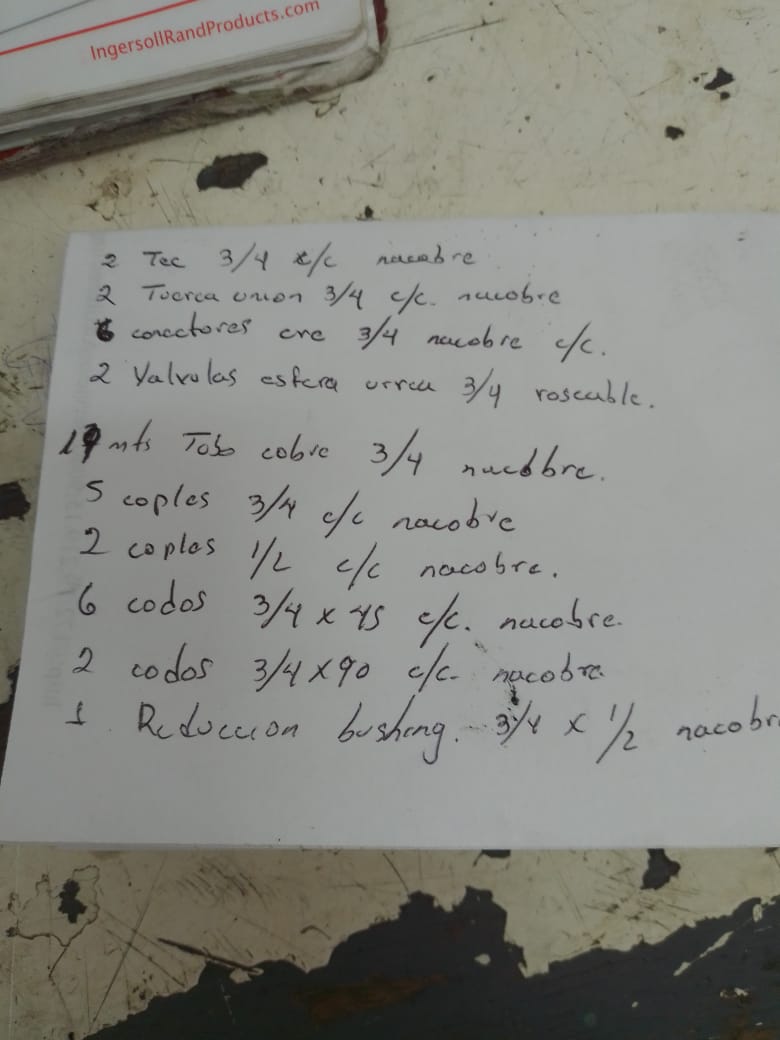 IngersollRandProducts.com
2 Tee 3/4 c/c nacobre
2 Tuerca union 3/4 c/c. nacobre
6 conectores cre 3/4 nacobre c/c.
2 Valvulas esfera urrea 3/4 roscable.
mts Tubo cobre 3/4 nacobre.
5 coples 3/4 c/c nacobre
2 coples 1/2 c/c nacobre.
6 codos 3/4 x 45 c/c. nacobre.
2 codos 3/4 x 90 c/c. nacobre
1 Reduccion bushing. 3/4 x 1/2 nacobre